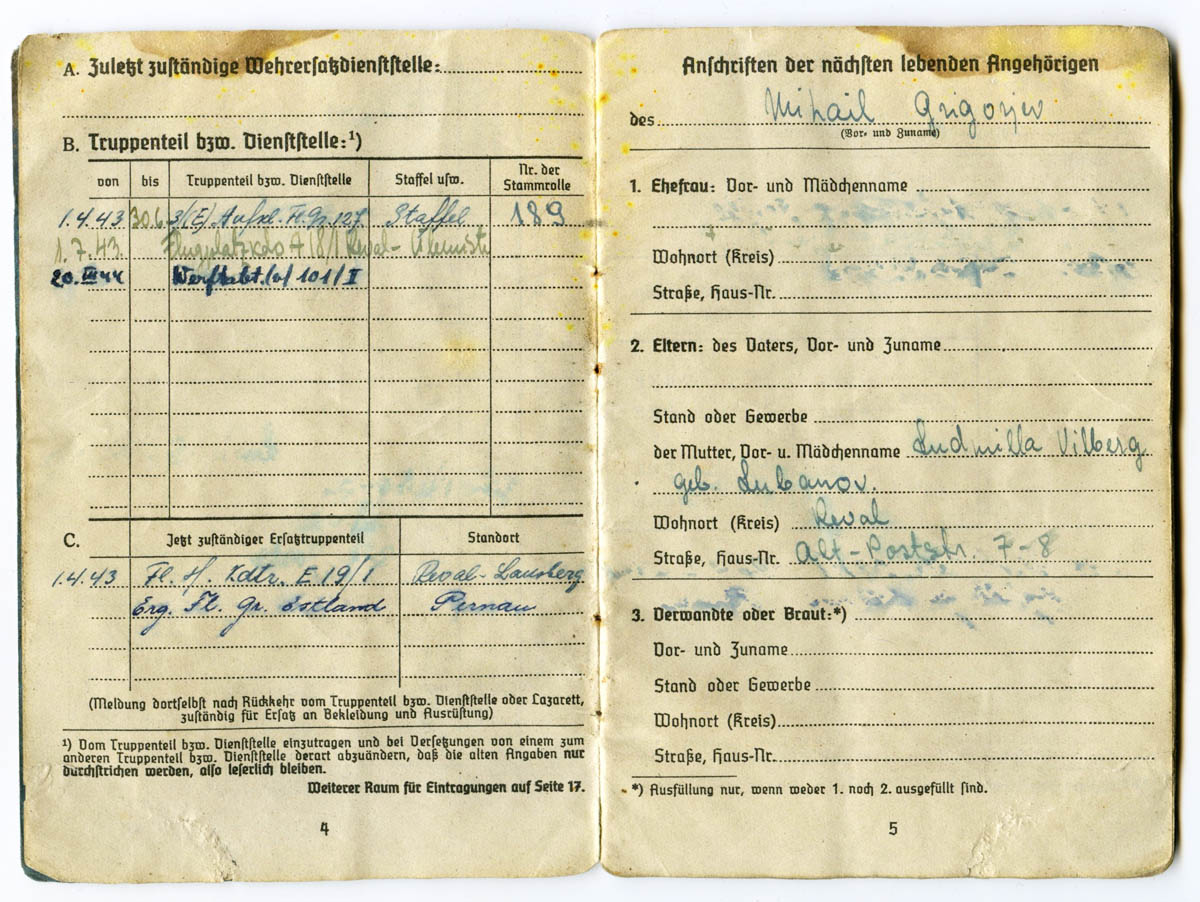 A. Zuletzt zuständige Wehrersatzdienststelle:
B. Truppenteil bzw. Dienststelle:¹)
von bis Truppenteil bzw. Dienststelle Staffel usw. Nr. der Stammrolle
1.4.43 30.6 3/(E). Aufkl. Fl. Gr. 127 Staffel 189
1.7.43. Flugplatzkdo A 18/I Reval-
20.III 44 Werftabt. (o) 101/I
C. Jetzt zuständiger Ersatztruppenteil Standort
1.4.43 Fl. H. Kdtr. E 19/I Reval-
Erg. Fl. Gr. Estland Pernau
(Meldung dortselbst nach Rückkehr vom Truppenteil bzw. Dienststelle oder Lazarett,
zuständig für Ersatz an Bekleidung und Ausrüstung)
¹) Vom Truppenteil bzw. Dienststelle einzutragen und bei Versetzungen von einem zum
anderen Truppenteil bzw. Dienststelle derart abzuändern, daß die alten Angaben nur
durchstrichen werden, also leserlich bleiben.
Weiterer Raum für Eintragungen auf Seite 17.
4
Anschriften der nächsten lebenden Angehörigen
des Mihail Grigorjew
(Vor- und Zuname)
1. Ehefrau: Vor- und Mädchenname
Wohnort (Kreis)
Straße, Haus-Nr.
2. Eltern: des Vaters, Vor- und Zuname
Stand oder Gewerbe
der Mutter, Vor- u. Mädchenname Ludmilla Vilberg
geb. Lubanov.
Wohnort (Kreis) Reval
Straße, Haus-Nr. Alt-Poststr. 7-8
3. Verwandte oder Braut:*)
Vor- und Zuname
Stand oder Gewerbe
Wohnort (Kreis)
Straße, Haus-Nr.
*) Ausfüllung nur, wenn weder 1. noch 2. ausgefüllt sind.
5